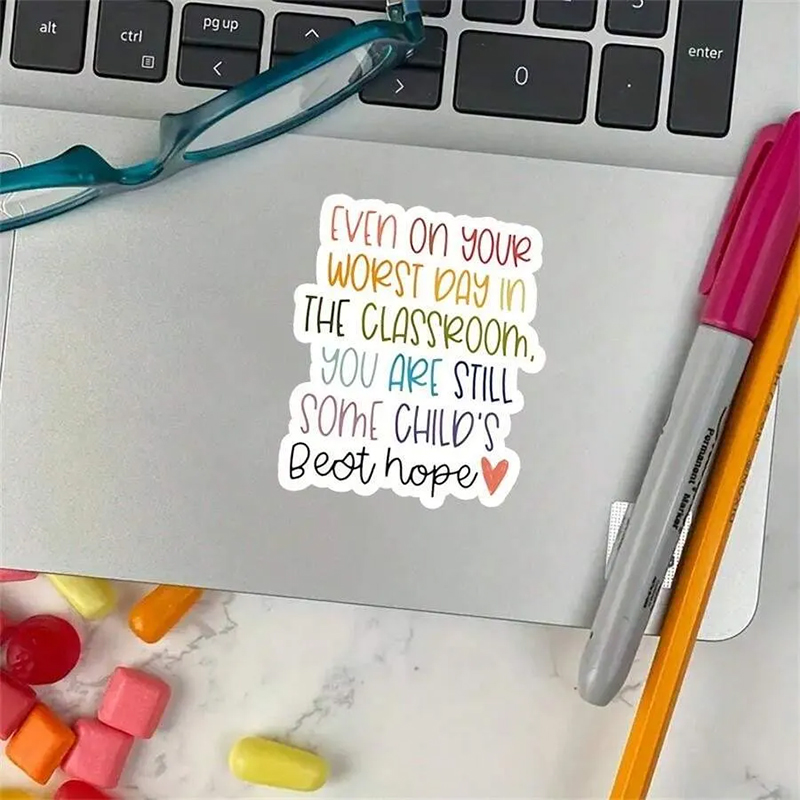 alt
ctrl
pg up
0
.
enter
EVEN ON YOUR
WORST DAY IN
THE CLASSROOM,
YOU ARE STILL
SOME CHILD'S
Best hope
Permanent
Marker